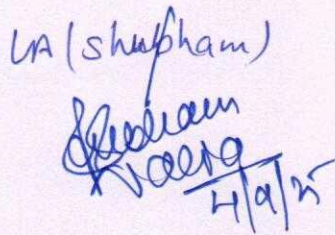 LA (Shubham)
Shubham
4/9/25